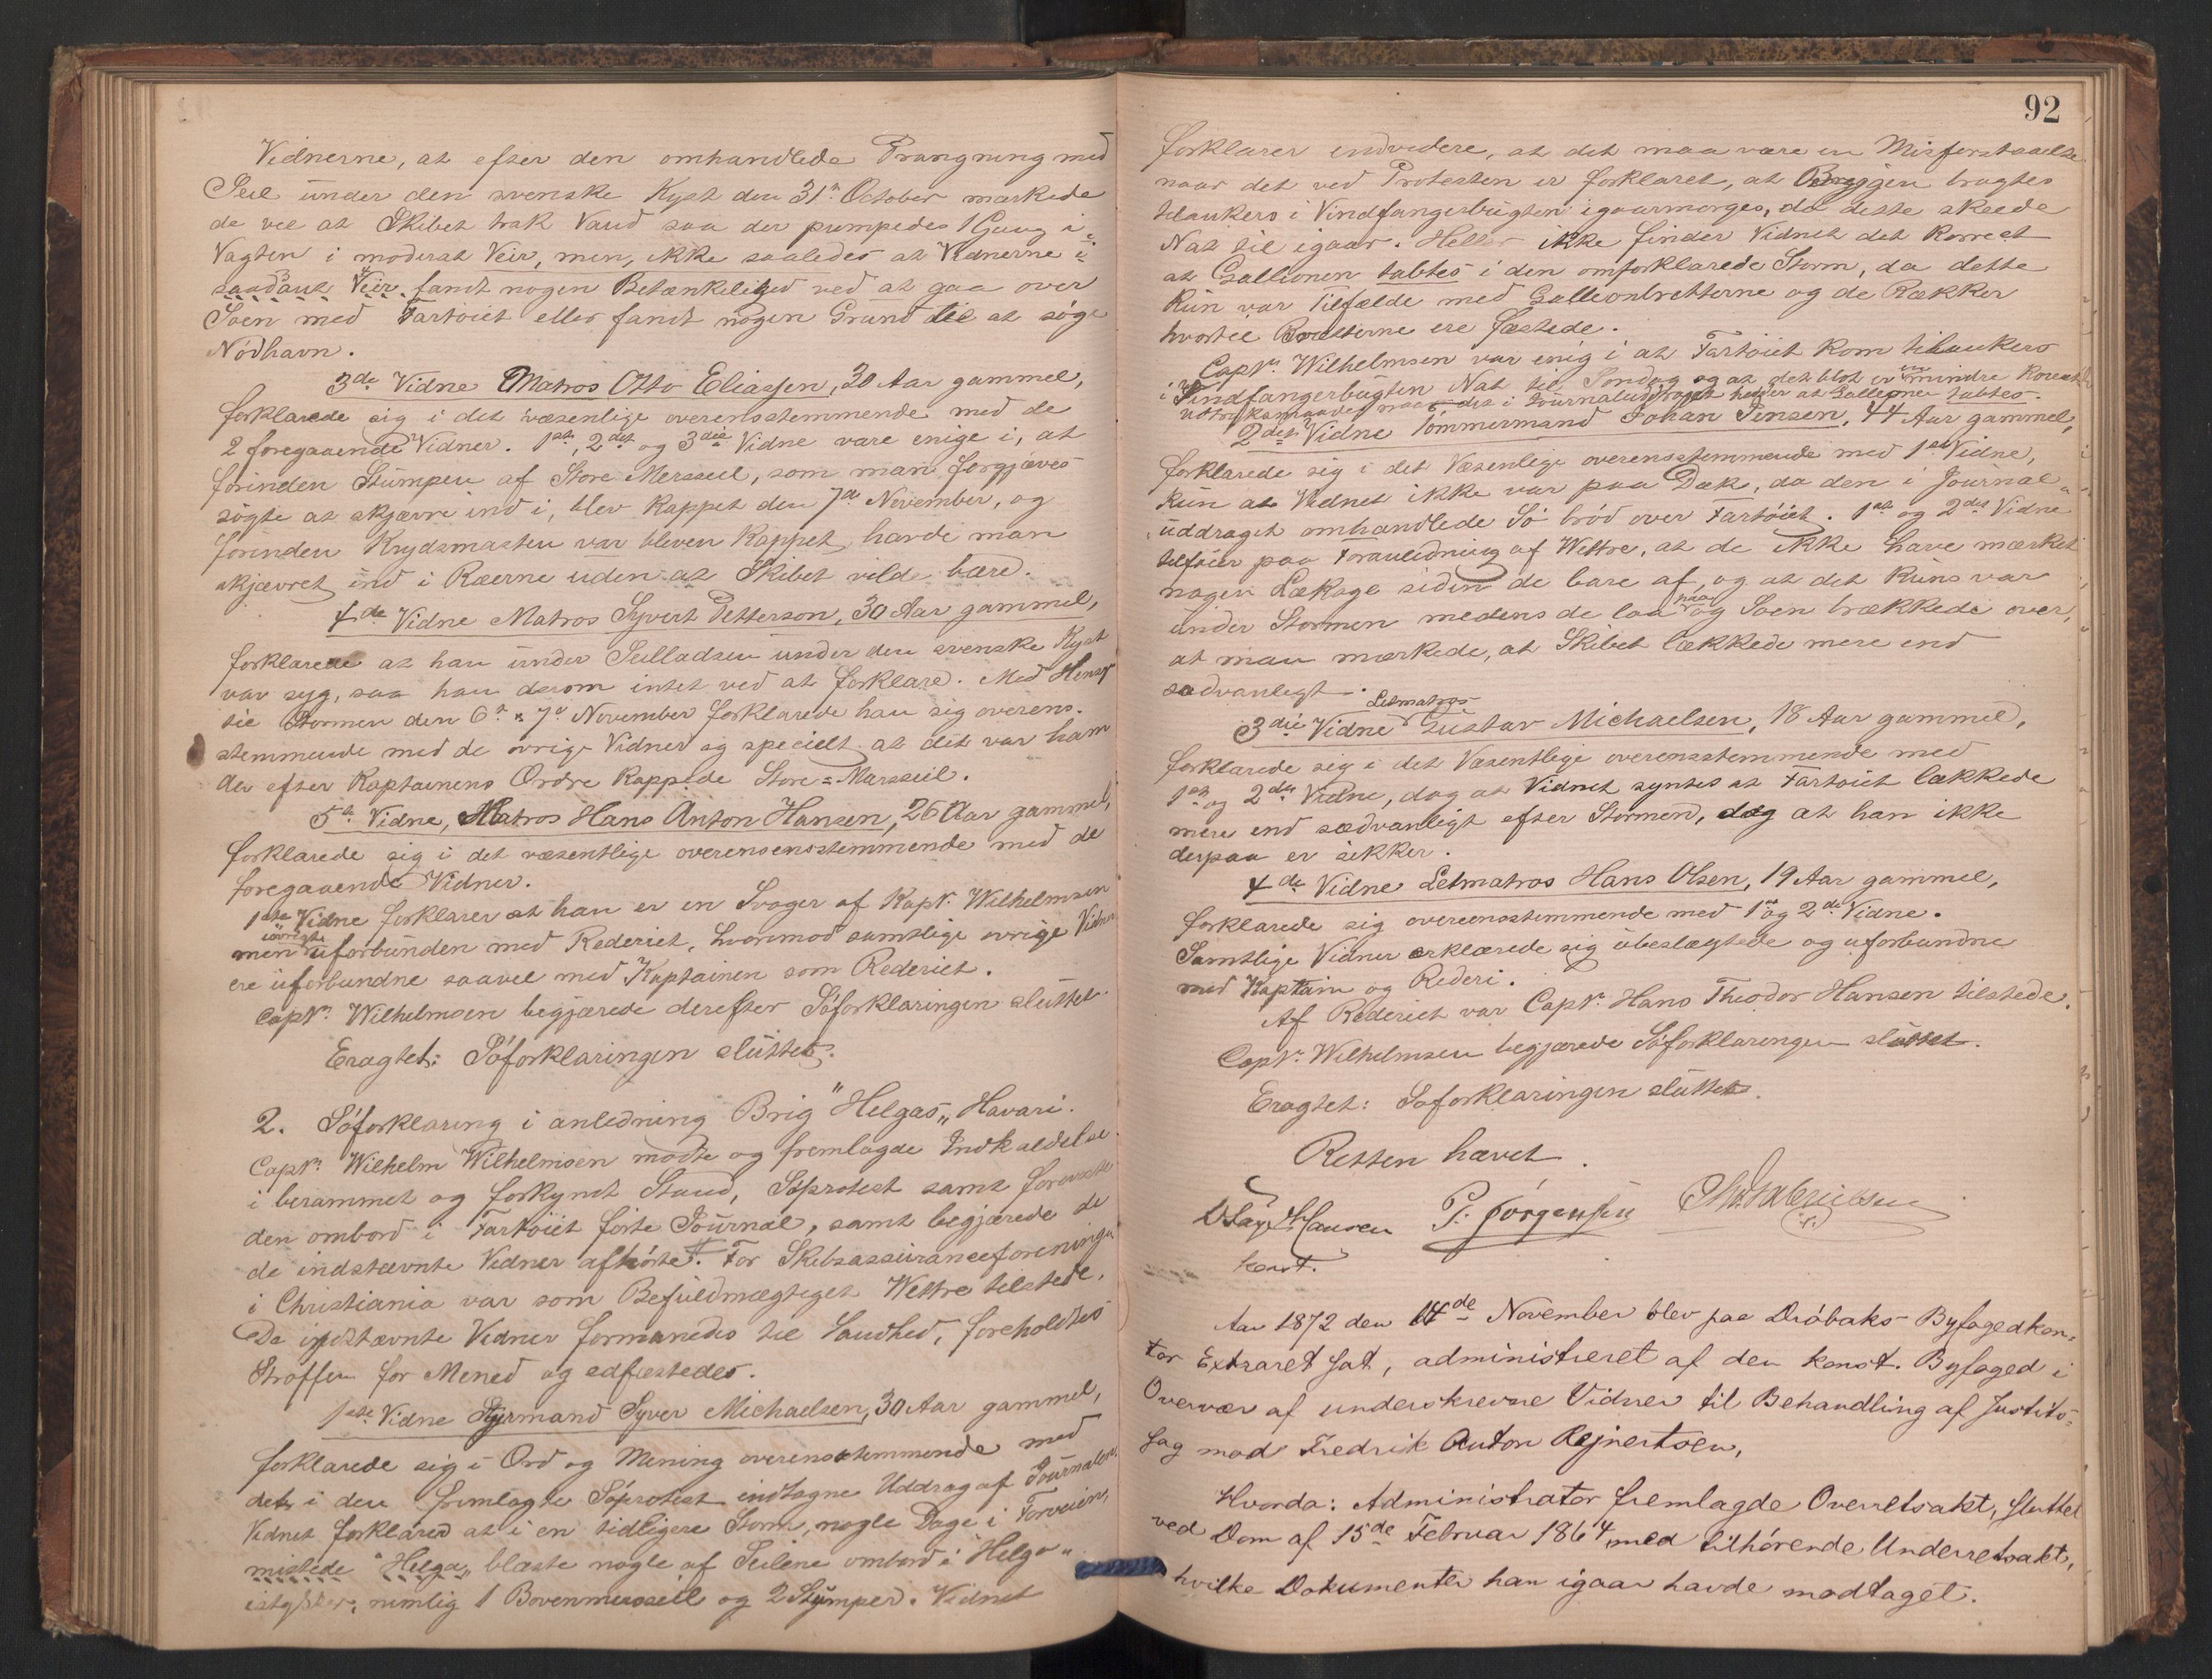 Vidnerne, at efter den omhandlede Prangning med
Seil under den svenske Kyst den 31te October mærkede
de vel at Skibet trak Vand saa der pumpedes 1 Gang i
Vagten i moderat Veir, men, ikke saaledes at Vidnerne i
saadant Veir fandt nogen Betænkelighed ved at gaa over
Søen med Fartøiet eller fandt nogen Grund til at søge
Nødhavn.
3de Vidne Matros Otto Eliassen, 30 Aar gammel,
forklarede sig i det væsenlige overensstemmende med de
2 foregaaende Vidner. 1ste, 2det og 3die Vidne vare enige i, at
forinden Stumpen af Store Mersseil, som man forgjæves
søgte at skjærre ind i, blev kappet den 7de November, og
forinden Krydsmasten var bleven kappet, havde man
skjævret ind i Ræerne uden at Skibet vilde bære.
4de Vidne Matros Syvert Petterson, 30 Aar gammel,
forklarede at han under Seiladsen under den svenske Kyst
var syg, saa han derom intet ved at forklare. Med Hensyn
til Stormen den 6te & 7de November forklarede han sig overens-
stemmende med de øvrige Vidner og specielt at det var ham
der efter Kaptainens Ordre kappede Store=Marsseil.
5te Vidne, Matros Hans Anton Hansen, 26 Aar gammel,
forklarede sig i det væsentlige overensensstemmende med de
foregaaende Vidner.
1ste Vidne forklarer at han er en Svoger af Kapt. Wilhelmsen
men iøvrigt uforbunden med Rederiet, hvorimod samtlige øvrige Vidner
ere uforbundne saavel med Kaptainen som Rederiet.
Captn. Wilhelmsen begjærede derefter Søforklaringen sluttet.
Eragtet: Søforklaringen sluttes.
2. Søforklaring i anledning Brig "Helgas" Havari.
Captn. Wilhelm Wilhelmsen mødte og fremlagde Indkaldelse
i berammet og forkyndt Stand, Søprotest samt foreviste
den ombord i Fartøiet førte Journal, samt begjærede de
de indstævnte Vidner afhørte. For Skibsassuranceforeningen
i Christiania var som Befuldmægtiget Wettre tilstede.
De indstævnte Vidner formanedes til Sandhed, foreholdtes
Straffen for Mened og edfæstedes.
1ste Vidne Styrmand Syver Michaelsen, 30 Aar gammel,
forklarede sig i Ord og Mening overensstemmende med
det i den fremlagte Søprotest indtagne Uddrag af Journalen.
Vidnet forklared at i en tidligere Storm, nogle Dage i Forveien,
mistede "Helga" blæste nogle af Seilene ombord i "Helga"
istykker, nemlig 1 Bovenmersseil og 2 Stumper. Vidnet
92
forklarer endvidere, at det maa være en Misforstaaelse
naar det ved Protesten er forklaret, at Briggen bragtes
tilankers i Vindfangerbugten igaarmorges, da dette skeede
Nat til igaar. Heller ikke finder Vidnet det korrect
at Gallionen tabtes i den omforklarede Storm, da dette
kun var Tilfælde med Gallionbretterne og de Rækker
hvortil Bretterne ere fæstede.
Captn. Wilhelmsen var enig i at Fartøiet kom tilankers
i Vindfangerbugten Nat til Søndag og at det blot er en mindre korrect
Udtryksmaade, naar det i Journaluddraget heder at Gallionen tabtes.
2det Vidne Tømmermand Johan Jensen, 44 Aar gammel,
forklarede sig i det Væsenlige overensstemmende med 1ste Vidne,
kun at Vidnet ikke var paa Dæk, da den i Journal-
uddraget omhandlede Sø brød over Fartøiet. 1ste og 2det Vidne
tilføier paa Foranledning af Wettre, at de ikke have mærket
nogen Lækage siden de bare af, og at det kuns var
under Stormen medens de laa paa og Søen brækkede over,
at man mærkede, at Skibet lækkede mere end
sædvanligt.
3die Vidne Letmatros Gustav Michaelsen, 18 Aar gammel,
forklarede sig i det Væsentlige overensstemmende med
1ste og 2det Vidne, dog at Vidnet syntes at Fartøiet lækkede
mere end sædvanligt efter Stormen, dog at han ikke
derpaa er sikker.
4de Vidne Letmatros Hans Olsen, 19 Aar gammel,
forklarede sig overensstemmende med 1ste og 2de Vidne.
Samtlige Vidner erklærede sig ubeslægtede og uforbundne
med Kaptain og Rederi.
Af Rederiet var Captn. Hans Theodor Hansen tilstede.
Captn. Wilhelmsen begjærede Søforklaringen sluttet.
Eragtet: Søforklaringen sluttes.
Retten hævet.
Hansen P. Jørgensen
konst.
Aar 1872 den 14de November blev paa Drøbaks Byfogedkon-
tor Extraret sat, administreret af den konst. Byfoged i
Overvær af underskrevne Vidner til Behandling af Justits-
sag mod Fredrik Anton Rejnertsen,
Hvorda: Administrator fremlagde Overretsakt, sluttet
ved Dom af 15de Februar 1864 med tilhørende Underretsakt,
hvilke Dokumenter han igaar havde modtaget.